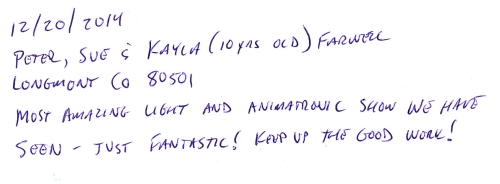 12/20/2014
PETER, SUE & KAYLA (10 YRS OLD) FARWELL
LONGMONT CO 80501
MOST AMAZING LIGHT AND ANIMATRONIC SHOW WE HAVE
SEEN - JUST FANTASTIC! KEEP UP THE GOOD WORK!